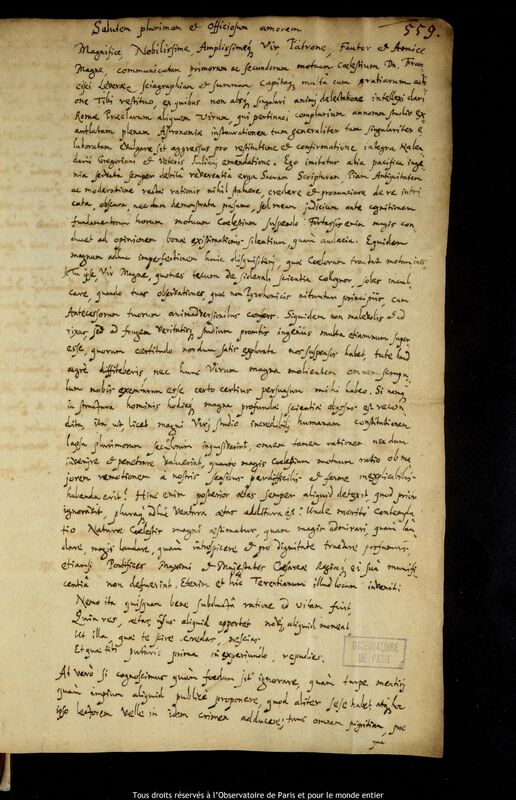 Salutem plurimam et Officiosum amorem
559.
Magnifice, Nobilissime, Amplissimeq; Vir Patrone, Fautor et Amice
Magne, communicatam primorum ac secundorum motuum Coelestium Dn. Fran-
cisci Leverae, sciagraphiam et summam Capitaq; multa cum gratiarum acti-
one Tibi restituo, ex quibus non absq; singulari animi delectatione intellexi clari
Romae Praeclarum aliquem Virum, qui pertinaci complurium annorum studio ex-
antlatam plenam Astronomiae instaurationem tum generaliter tam singulariter e-
laboratam evulgare sit aggressus pro restitutione et confirmatione integra Kalen-
darii Gregoriani et Veteris Juliani emendatione. Ego imitatus alia pacifica inge-
nia servata semper debita reverentia erga Sacram Scripturam Piam Antiquitatem
ac moderatione rectae rationis nihil statuere, credere et pronunciare de re intri-
cata, obscura necdum demonstrata praesumo, sed meum judicium ante cognitionem
fundamentorum horum motuum Coelestium suspendo. Fortassis enim magis con-
ducet ad opinionem bonae existimationis silentium, quam audacia. Equidem
magnam adhuc imperfectionem huic disquisitioni, quae Coelorum tractat motum, ines-
se, Tu ipse, Vir Magne, quoties tecum de siderali scientia colloquor, soles incul-
care, quando tuas observationes, quae non Pyrrhonicis nituntur principiis, cum
Antecessorum tuorum animadversionibus confers. Siquidem non malevolis et ad
rixas, sed ad frugem Veritatisq; studium promtis ingeniis multa etiamnum super-
esse, quorum certitudo nondum satis explorata nos suspensos habet, tute haud
aegre diffiteberis nec hunc Virum magna molientem omnem scrupu-
lum nobis exemturum esse certo certius persuasum mihi habeo. Si namq;
in structura hominis hodieq; magna profundae scientiae abyssus est recon-
dita, ita ut, licet magni Viri studio incredibili humanam constitutionem
lapsu plurimorum seculorum inquisiverint, omnem tamen rationem necdum
invenire et penetrare valuerint, quanto magis Coelestium motuum ratio ob ma-
jorem remotionem a nostris sensibus perdifficilis et ferme inexplicabilis
habenda erit? Hinc enim posterior aetas semper aliquid detexit quod prior
ignoravit, pluraq; adhuc Ventura aetas additura est. Unde merito Contempla-
tio Naturae Coelestis magni aestimatur, quam magis admirari, quam lau-
dare, magis laudare, quam introspicere et pro dignitate tractare possumus,
etiamsi Pontifices Maximi et Majestates Caesareae Regiaeq; ei sua munifi-
centia non defuerint. Etenim et hic Terentianum illud locum inveniti
Nemo ita quisquam bene subducta ratione ad vitam fuit
Quin res, aetas, usus aliquid apportet novi, aliquid moneat
Ut illa, quae te scire credas, nescias
Et quae tibi putaris prima in experiundo, repudies.
At vero si cognoscimus quam foedum sit ignorare, quam turpe mentiri,
quam impium aliquid publice proponere, quod aliter sese habet, atq; hoc
ipso lectorem velle in idem crimen adducere; tunc omnem pigritiam, pro
que
OBSERVATOIRE
DE PARIS
Tous droits réservés à l'Observatoire de Paris et pour le monde entier